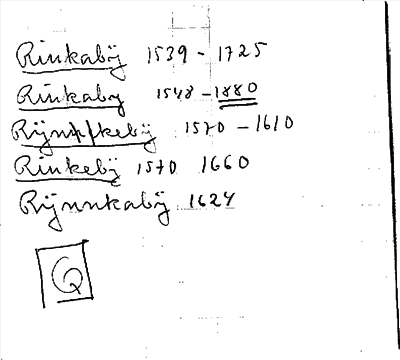 Rinkabÿ 1539 - 1725
Rinkaby 1548 - 1880
Rÿnkebÿ 1570 - 1610
Rinkebÿ 1570 1660
Rÿnnkabÿ 1624
Q